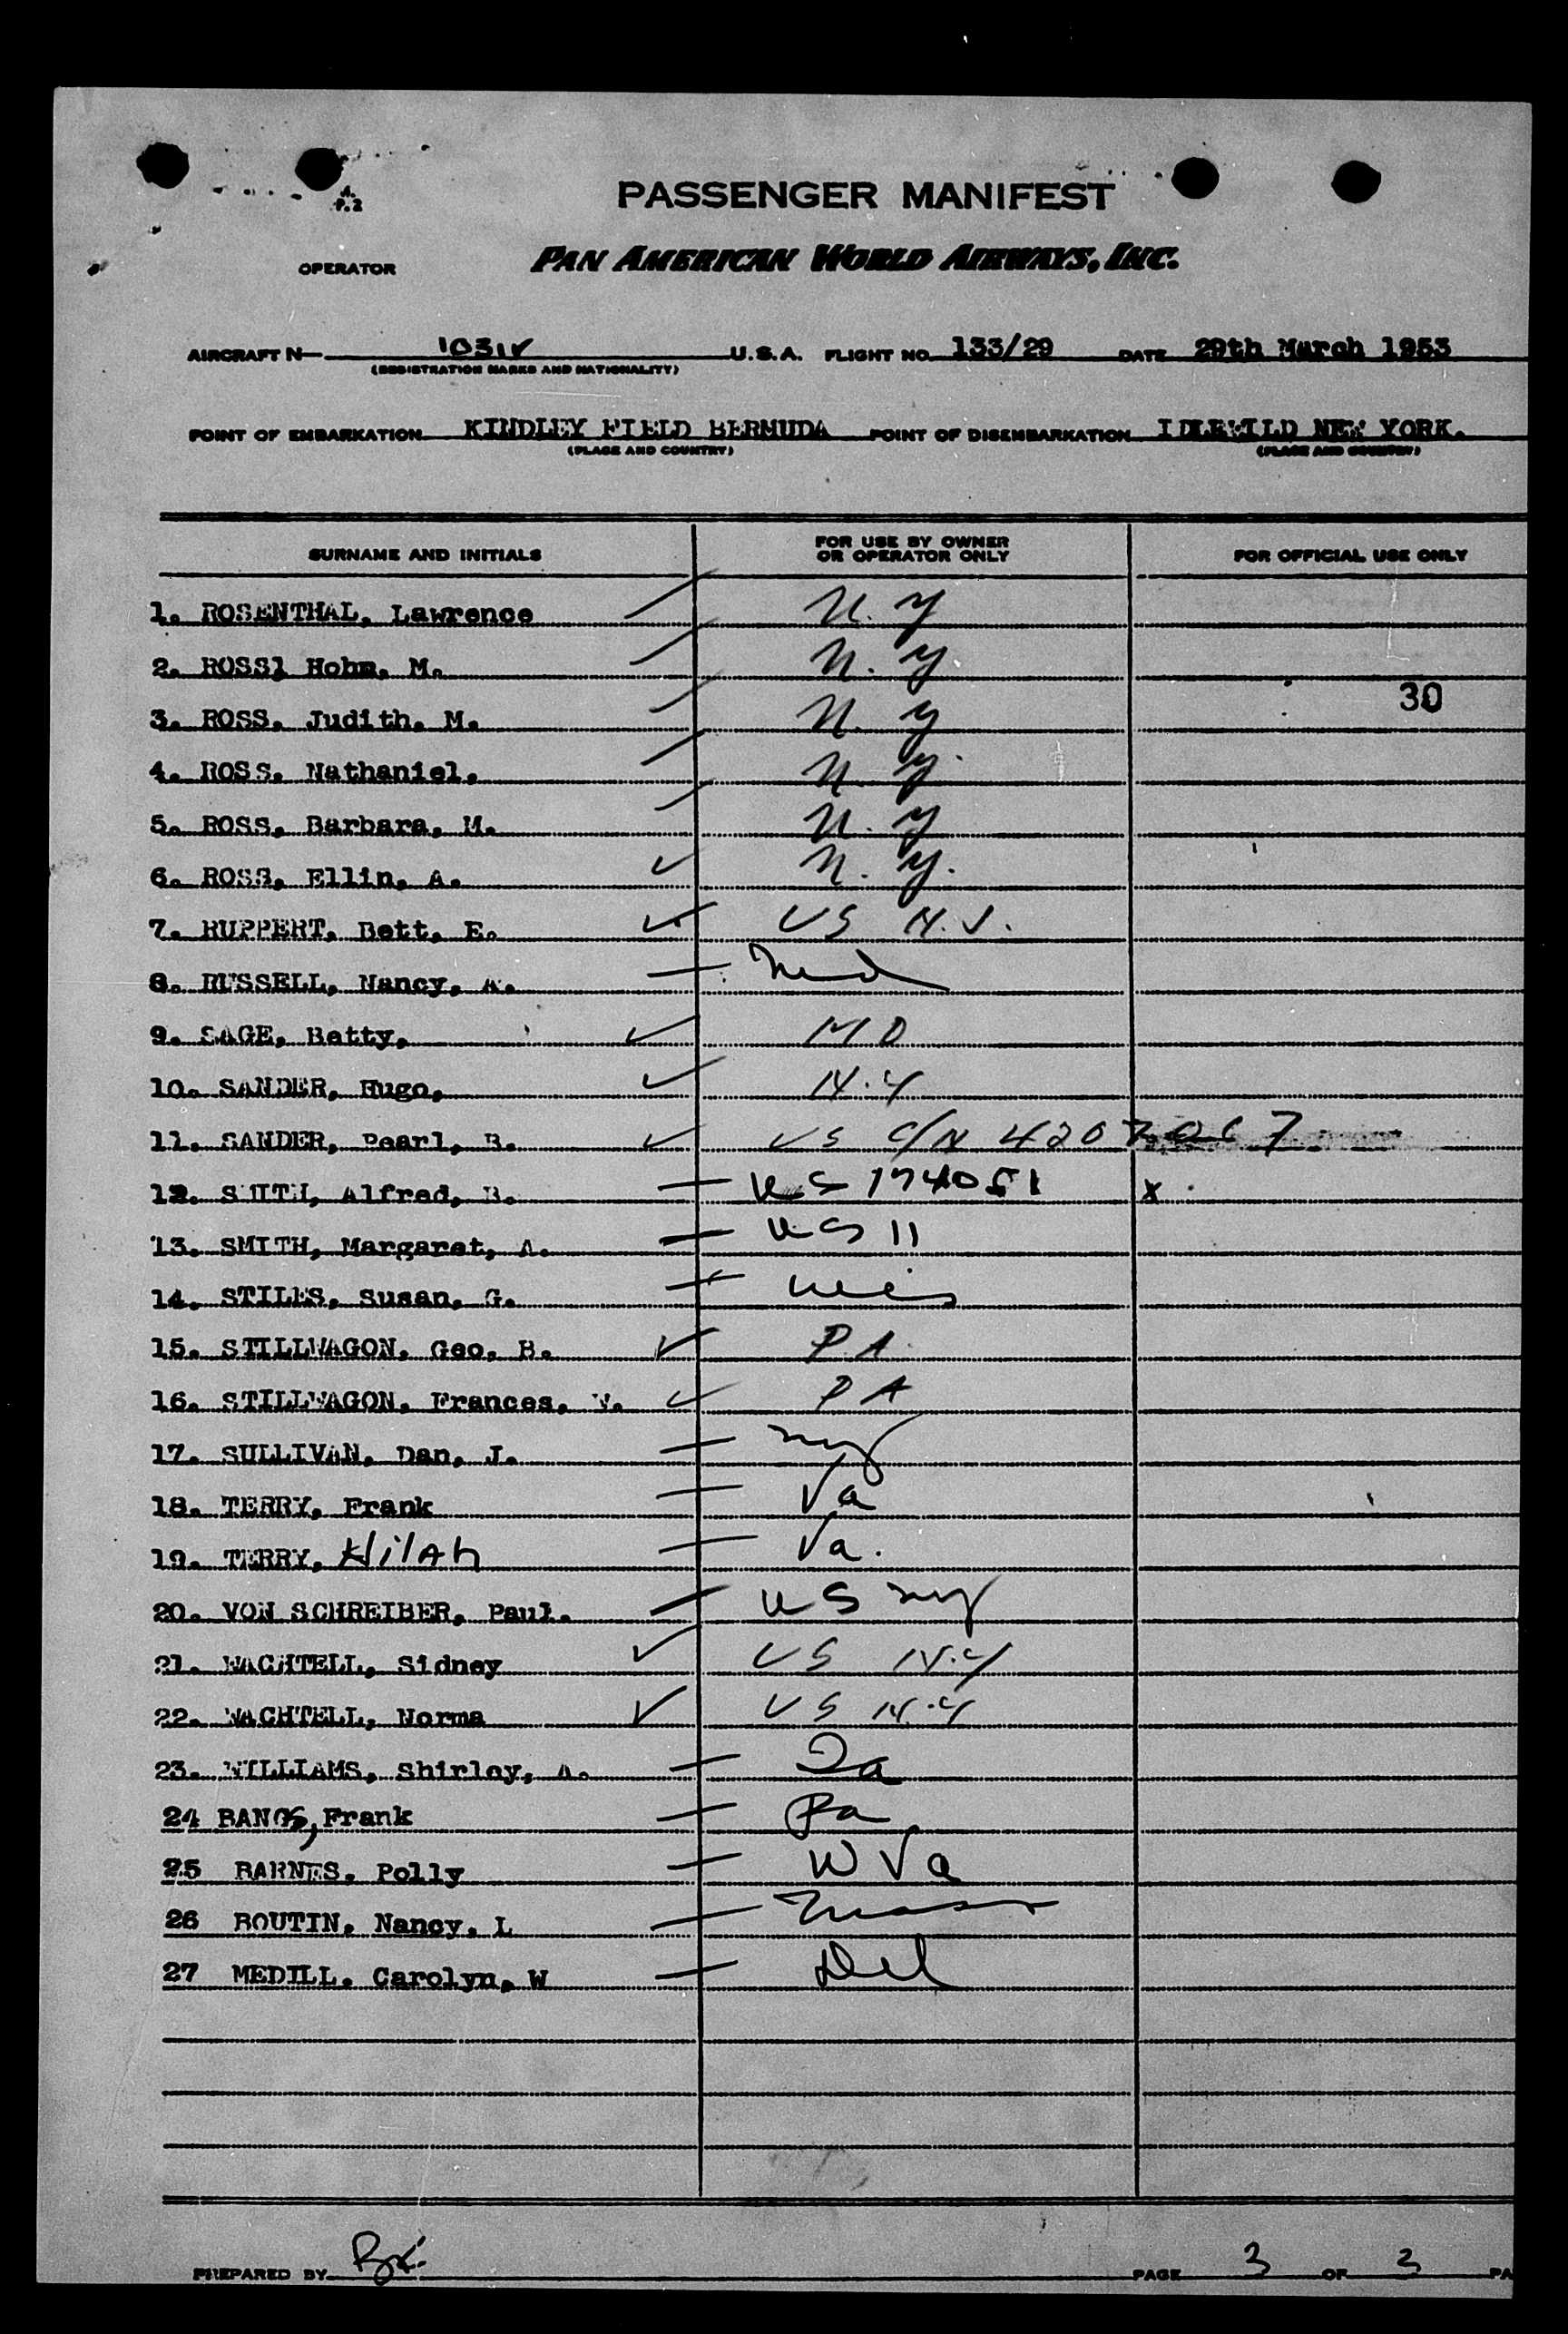 P.2
PASSENGER MANIFEST
OPERATOR PAN AMERICAN WORLD AIRWAYS, INC.
AIRCRAFT N- 1031V U.S.A. FLIGHT NO. 133/29 DATE 29th March 1953
(REGISTRATION MARKS AND NATIONALITY)
POINT OF EMBARKATION KINDLEY FIELD BERMUDA POINT OF DISEMBARKATION IDLEWILD NEW YORK.
(PLACE AND COUNTRY) (PLACE AND COUNTRY)
SURNAME AND INITIALS FOR USE BY OWNER OR OPERATOR ONLY FOR OFFICIAL USE ONLY
1. ROSENTHAL, Lawrence N.Y
2. ROSS1 Hohn, M. N.Y
30
3. ROSS, Judith, M. N.Y
4. ROSS, Nathaniel, N.Y.
5. ROSS, Barbara, M. N.Y
6. ROSS, Ellin, A. N.Y.
7. RUPPERT, Bett, E. ✓ US N.J.
8. RUSSELL, Nancy, A.
9. SAGE, Betty, ✓ MD
10. SANDER, Hugo, ✓ N.Y
11. SANDER, Pearl, B. ✓ US C/N 4207067
12. SMITH, Alfred, B. US 174051 x
13. SMITH, Margaret, A. US 11
14. STILES, Susan, G.
15. STILLWAGON, Geo, B. ✓ P.A.
16. STILLWAGON, Frances, ✓ PA
17. SULLIVAN, Dan, J. NY
18. TERRY, Frank Va
19. TERRY, HilAh Va.
20. VON SCHREIBER, Paul. US NY
21. WACHTELL, Sidney ✓ US N.Y
22. WACHTELL, Norma ✓ US N.Y
23. WILLIAMS, Shirley, A.
24 BANGS, Frank Pa
25 BARNES. Polly W Va
26 BOUTIN, Nancy, L Mass
27 MEDILL. Carolyn, W Del
PREPARED BY PAGE 3 OF 3 PA